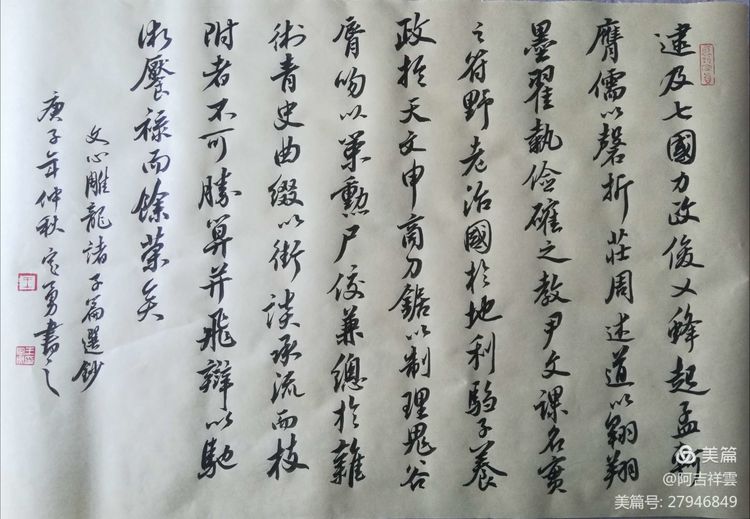 逮及七國力政俊乂蜂起孟軻
膺儒以磬折莊周述道以翱翔
墨翟執儉確之教尹文課名實
之符野老治國於地利騶子養
政於天文申商刀鋸以制理鬼谷
脣吻以策勳尸佼兼總於雜
術青史曲綴以街談承流而枝
附者不可勝算并飛辯以馳
術饜祿而餘榮矣
文心雕龍諸子篇選鈔
庚子年仲秋勇書之
美篇
@阿吉祥雲
美篇号: 27946849